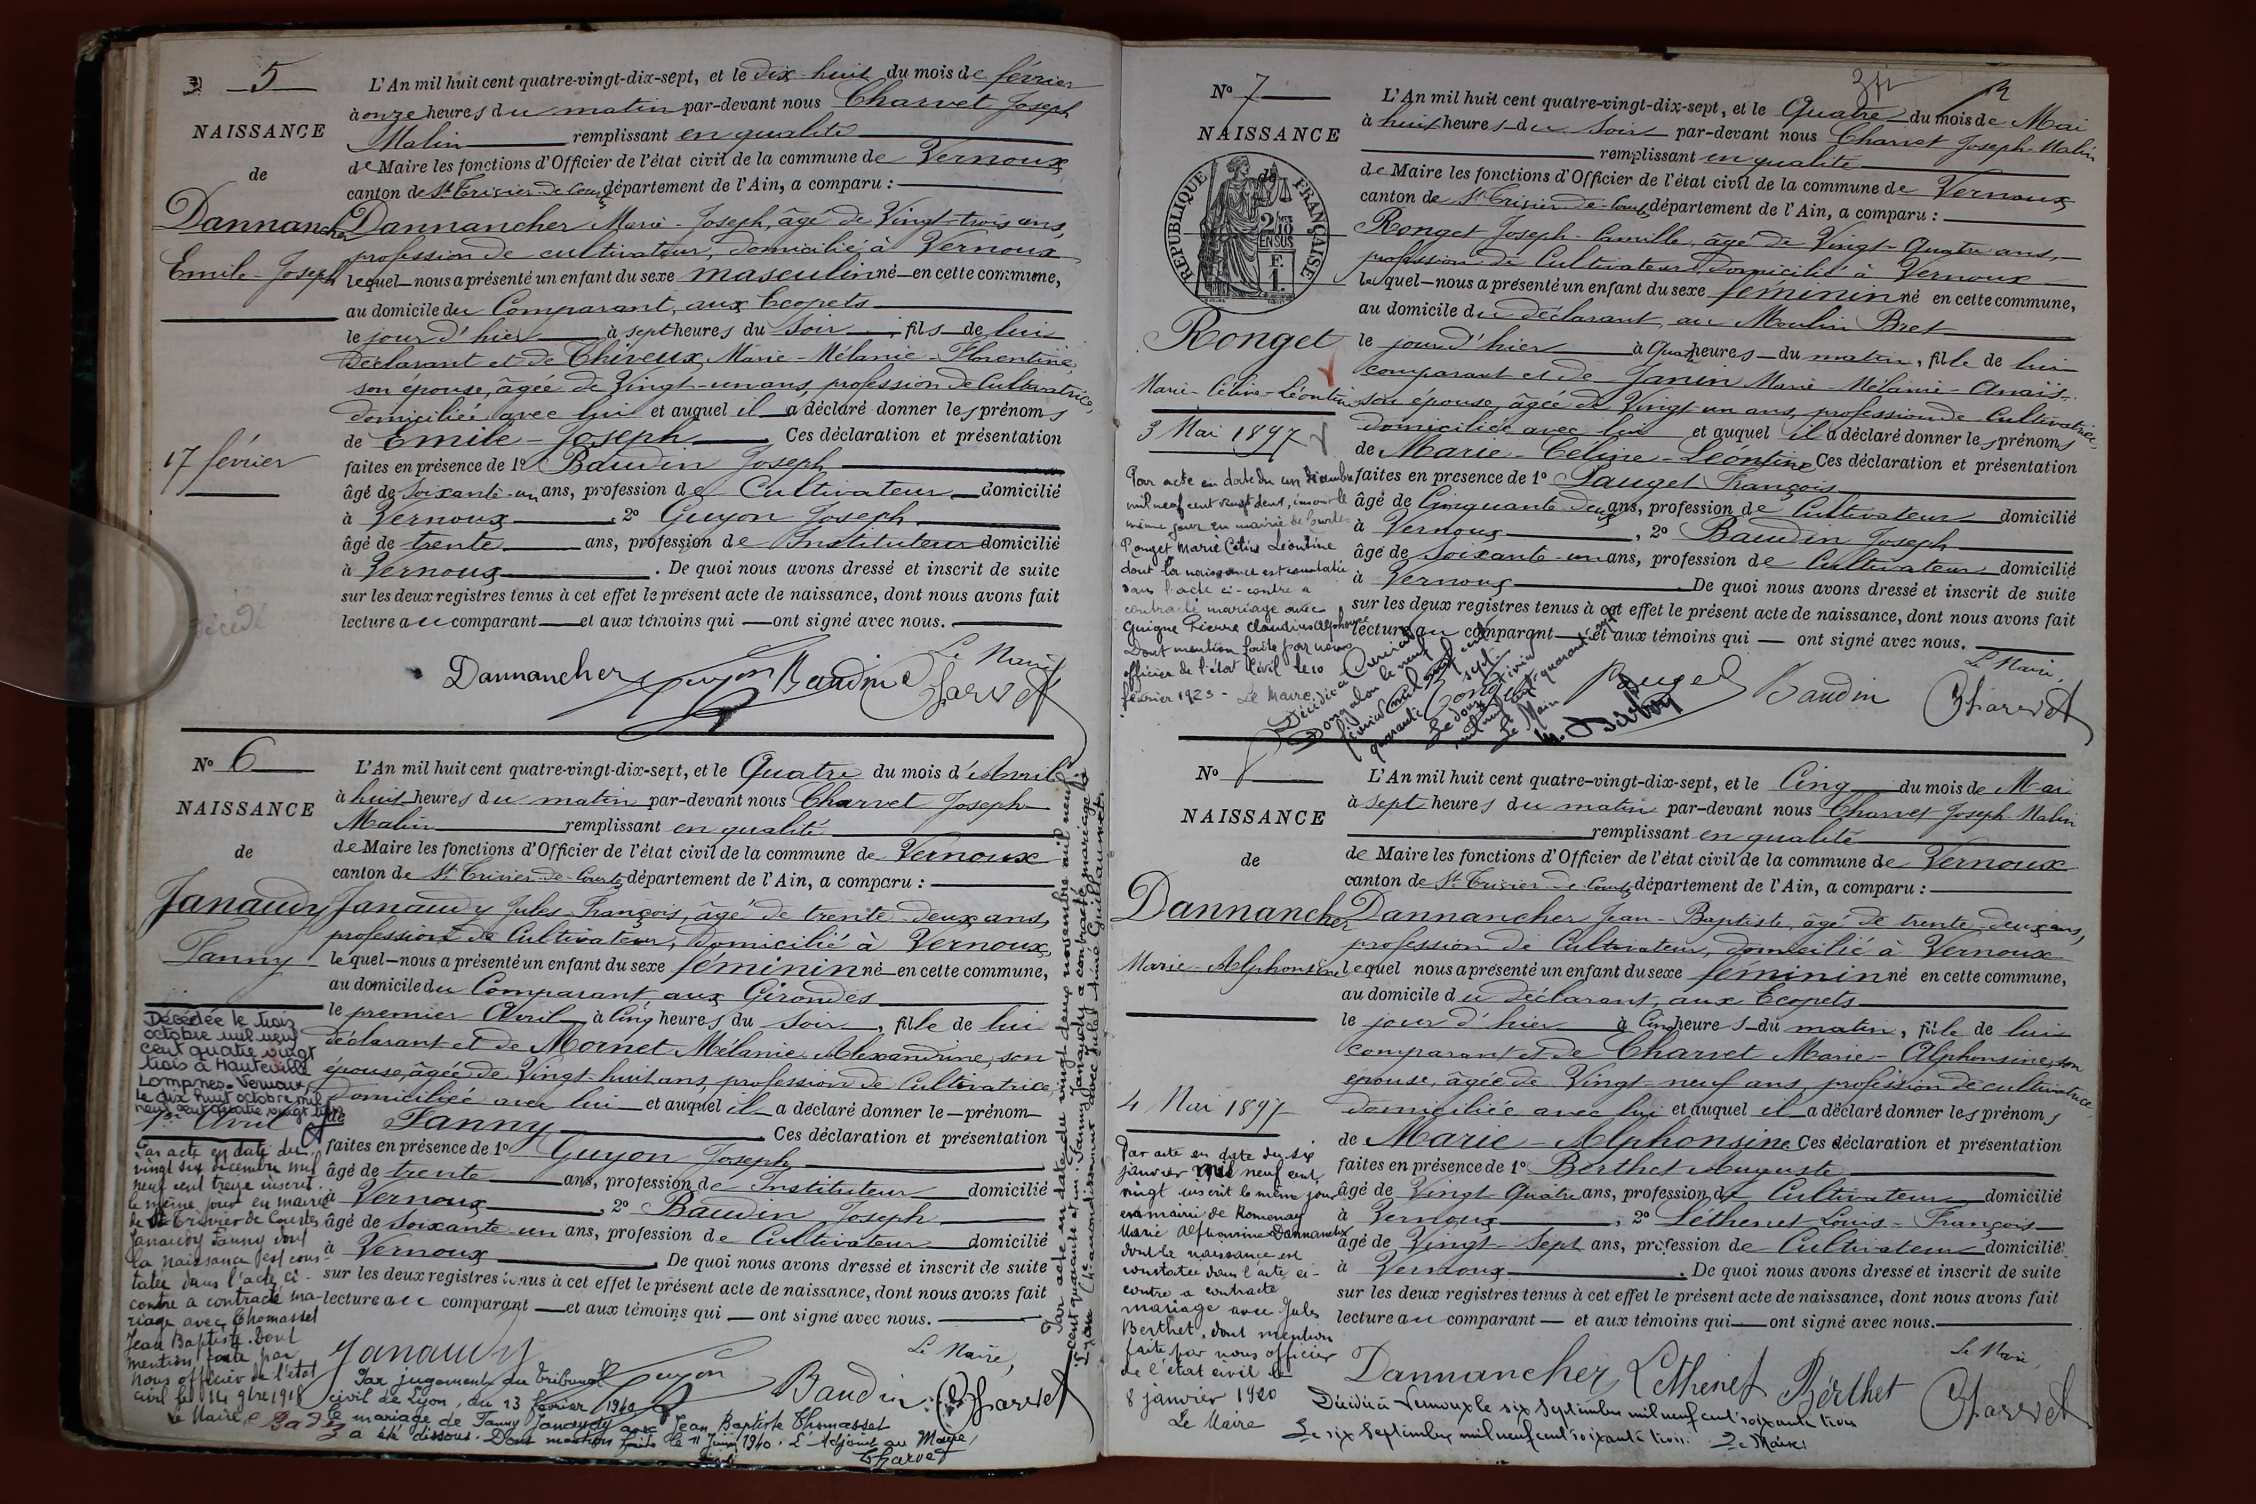 5
NAISSANCE
de
Dannancher
Emile-Joseph
17 février
L'An mil huit cent quatre-vingt-dix-sept, et le dix-huit du mois de février
à onze heures du matin par-devant nous Charvet Joseph
Malin remplissant en qualité
de Maire les fonctions d'Officier de l'état civil de la commune de Vernoux
canton de St Trivier-de-Courtes département de l'Ain, a comparu :
Dannancher Marie-Joseph, âgé de Vingt-trois ans,
profession de cultivateur, domicilié à Vernoux
lequel nous a présenté un enfant du sexe masculin né en cette commune,
au domicile du Comparant, aux Ecopets
le jour d'hier à sept heures du soir, fils de lui
Déclarant et de Thiveux Marie-Mélanie-Florentine
son épouse, âgée de Vingt-un ans, profession de Cultivatrice,
domiciliée avec lui et auquel il a déclaré donner les prénoms
de Emile-Joseph Ces déclaration et présentation
faites en présence de 1º Baudin Joseph
âgé de soixante-un ans, profession de Cultivateur domicilié
à Vernoux, 2º Guyon Joseph
âgé de trente ans, profession de Instituteur domicilié
à Vernoux. De quoi nous avons dressé et inscrit de suite
sur les deux registres tenus à cet effet le présent acte de naissance, dont nous avons fait
lecture au comparant et aux témoins qui ont signé avec nous.
Le Maire
Dannancher Guyon Baudin Charvet
Nº 6
NAISSANCE
de
Janaudy
Fanny
Décédée le trois
octobre mil neuf
cent quatre vingt
trois à Hauteville
Lompnes. Vernoux,
le dix huit octobre mil
neuf cent quatre vingt trois
1er Avril
Par acte en date du
vingt six décembre mil
neuf cent treize inscrit
le même jour en mairie
de St Trivier de Courtes
Janaudy Fanny dont
la naissance est cons-
tatée dans l'acte ci-
contre a contracté ma-
riage avec Thomasset
Jean Baptiste. Dont
mention faite par
nous officier de l'état
civil le 14 9bre 1918
Le Maire
L'An mil huit cent quatre-vingt-dix-sept, et le Quatre du mois d'Avril
à huit heures du matin par-devant nous Charvet Joseph
Malin remplissant en qualité
de Maire les fonctions d'Officier de l'état civil de la commune de Vernoux
canton de St Trivier-de-Courtes département de l'Ain, a comparu :
Janaudy Jules-François, âgé de trente-deux ans,
profession de Cultivateur, domicilié à Vernoux,
lequel nous a présenté un enfant du sexe féminin né en cette commune,
au domicile du Comparant aux Girondes
le premier Avril à Cinq heures du soir, fille de lui
déclarant et de Mornet Mélanie-Alexandrine, son
épouse, âgée de Vingt-huit ans, profession de Cultivatrice,
domiciliée avec lui et auquel il a déclaré donner le prénom
de Fanny Ces déclaration et présentation
faites en présence de 1º Guyon Joseph
âgé de trente ans, profession de Instituteur domicilié
à Vernoux, 2º Baudin Joseph
âgé de soixante-un ans, profession de Cultivateur domicilié
à Vernoux. De quoi nous avons dressé et inscrit de suite
sur les deux registres tenus à cet effet le présent acte de naissance, dont nous avons fait
lecture au comparant et aux témoins qui ont signé avec nous.
Le Maire,
Janaudy Guyon Baudin Charvet
Par jugement du tribunal
civil de Lyon, du 13 février 1940
le mariage de Fanny Janaudy avec Jean Baptiste Thomasset
a été dissous. Dont mention faite le 11 juin 1940. L'Adjoint au Maire,
Charvet
Par acte en date du vingt deux novembre mil neuf
cent quarante et un Fanny Janaudy a contracté mariage à
Lyon arrondissement avec Jules Aimé Guillaumet
Nº 7
NAISSANCE
de
RÉPUBLIQUE FRANÇAISE
2/10 EN SUS
F. 1.
Ronget
Marie-Céline-Léontine
3 Mai 1897
Par acte en date du un décembre
mil neuf cent vingt deux, inscrit le
même jour en mairie de Courtes
Ronget Marie Céline Léontine
dont la naissance est constatée
dans l'acte ci-contre a
contracté mariage avec
Guigne Pierre Claudius Alphonse
Dont mention faite par nous
officier de l'état civil le 10
février 1923 - Le Maire
L'An mil huit cent quatre-vingt-dix-sept, et le Quatre du mois de Mai
à huit heures du soir par-devant nous Charvet Joseph-Malin
remplissant en qualité
de Maire les fonctions d'Officier de l'état civil de la commune de Vernoux
canton de St Trivier-de-Courtes département de l'Ain, a comparu :
Ronget Joseph-Camille, âgé de Vingt-Quatre ans,
profession de Cultivateur, domicilié à Vernoux
lequel nous a présenté un enfant du sexe féminin né en cette commune,
au domicile du déclarant, au Moulin Bret
le jour d'hier à Quatre heures du matin, fille de lui
comparant et de Janin Marie-Mélanie-Anaïs,
son épouse, âgée de Vingt-un ans, profession de Cultivatrice
domiciliée avec lui et auquel il a déclaré donner les prénoms
de Marie-Céline-Léontine Ces déclaration et présentation
faites en présence de 1º Pauget François
âgé de Cinquante-deux ans, profession de Cultivateur domicilié
à Vernoux, 2º Baudin Joseph
âgé de soixante-un ans, profession de Cultivateur domicilié
à Vernoux De quoi nous avons dressé et inscrit de suite
sur les deux registres tenus à cet effet le présent acte de naissance, dont nous avons fait
lecture au comparant et aux témoins qui ont signé avec nous.
Le Maire,
Pauget Baudin Charvet
Nº 8
NAISSANCE
de
Dannancher
Marie-Alphonsine
4 Mai 1897
Par acte en date du six
janvier mil neuf cent
vingt inscrit le même jour
en mairie de Romenay
Marie Alphonsine Dannancher
dont la naissance est
constatée dans l'acte ci-
contre a contracté
mariage avec Jules
Berthet, dont mention
faite par nous officier
de l'état civil le
8 janvier 1920
Le Maire
L'An mil huit cent quatre-vingt-dix-sept, et le Cinq du mois de Mai
à sept heures du matin par-devant nous Charvet Joseph-Malin
remplissant en qualité
de Maire les fonctions d'Officier de l'état civil de la commune de Vernoux
canton de St Trivier-de-Courtes département de l'Ain, a comparu :
Dannancher Jean-Baptiste, âgé de trente-deux ans,
profession de Cultivateur, domicilié à Vernoux
lequel nous a présenté un enfant du sexe féminin né en cette commune,
au domicile du déclarant, aux Ecopets
le jour d'hier à Cinq heures du matin, fille de lui
comparant et de Charvet Marie-Alphonsine, son
épouse, âgée de Vingt-neuf ans, profession de cultivatrice
domiciliée avec lui et auquel il a déclaré donner les prénoms
de Marie-Alphonsine Ces déclaration et présentation
faites en présence de 1º Berthet Auguste
âgé de Vingt-Quatre ans, profession de Cultivateur domicilié
à Vernoux, 2º Léthenet Louis-François
âgé de Vingt-Sept ans, profession de Cultivateur domicilié
à Vernoux. De quoi nous avons dressé et inscrit de suite
sur les deux registres tenus à cet effet le présent acte de naissance, dont nous avons fait
lecture au comparant et aux témoins qui ont signé avec nous.
Le Maire,
Dannancher Lethenet Berthet Charvet
Décédée à Vernoux le six Septembre mil neuf cent soixante trois
Le six Septembre mil neuf cent soixante trois. Le Maire